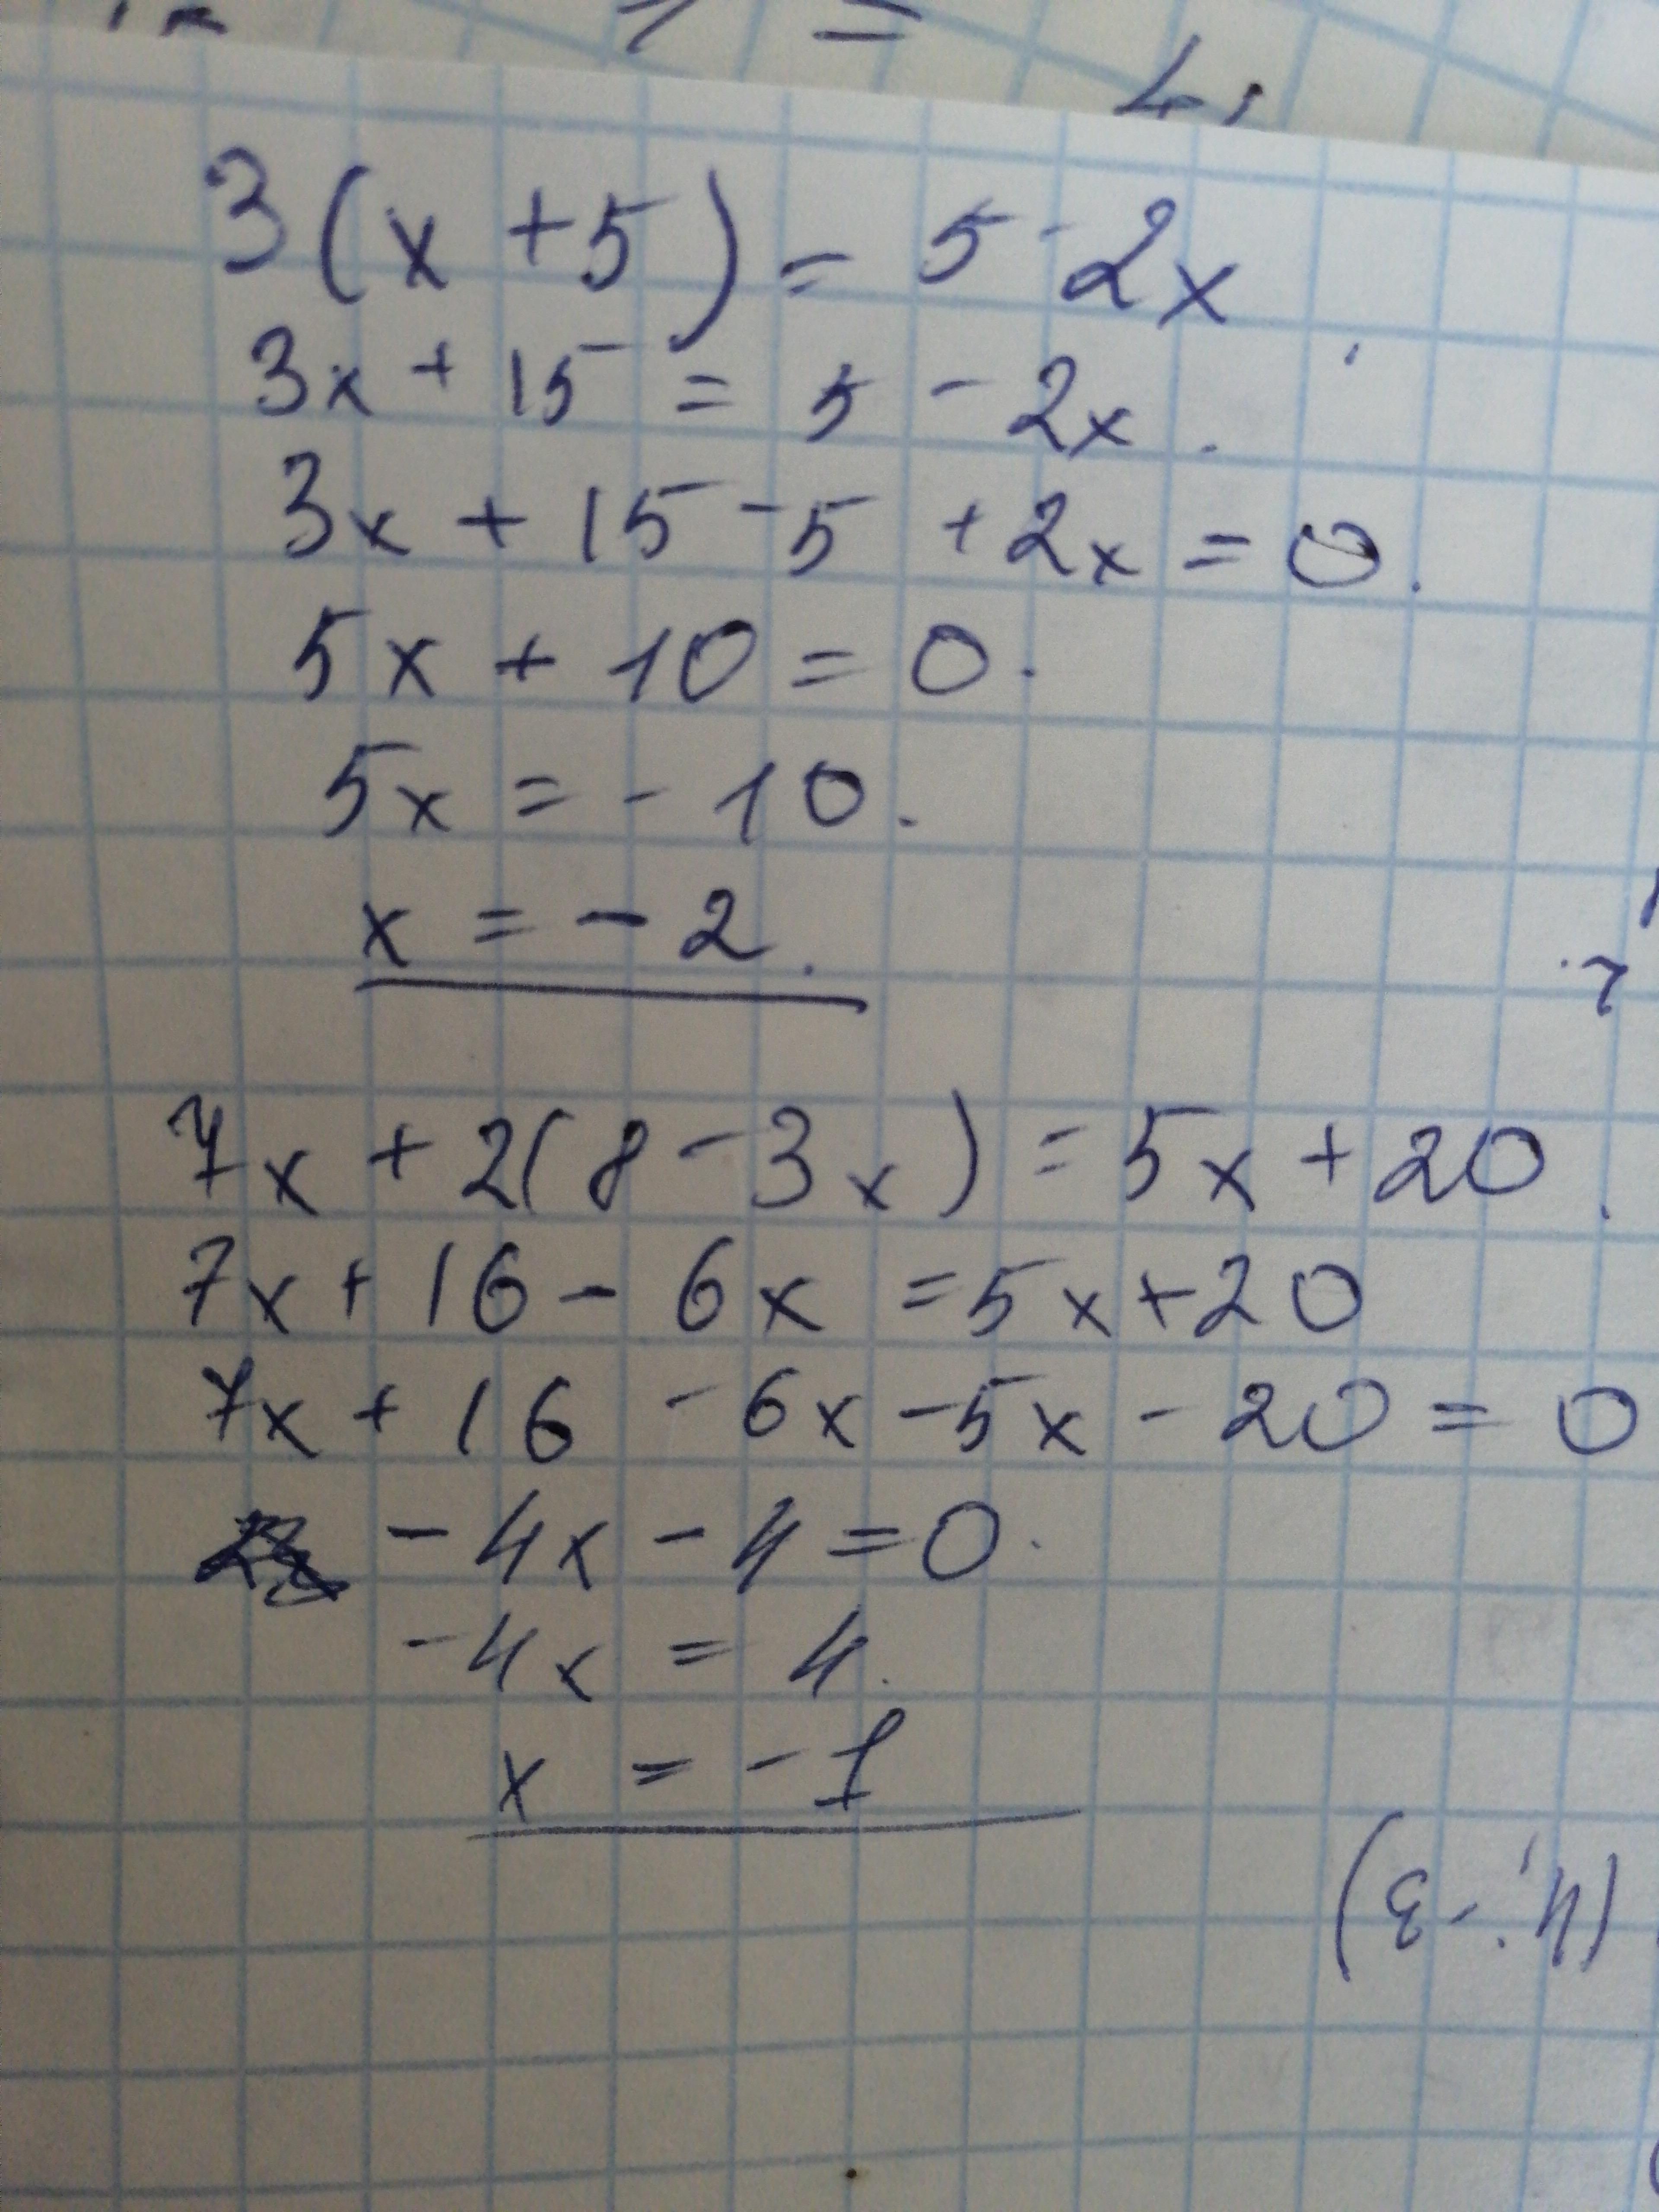 3(x+5)=5-2x
3x+15=5-2x.
3x+15-5+2x=0.
5x+10=0.
5x=-10.
x=-2.
7x+2(8-3x)=5x+20.
7x+16-6x=5x+20
7x+16-6x-5x-20=0
-4x-4=0.
-4x=4.
x=-1
(4;-3)